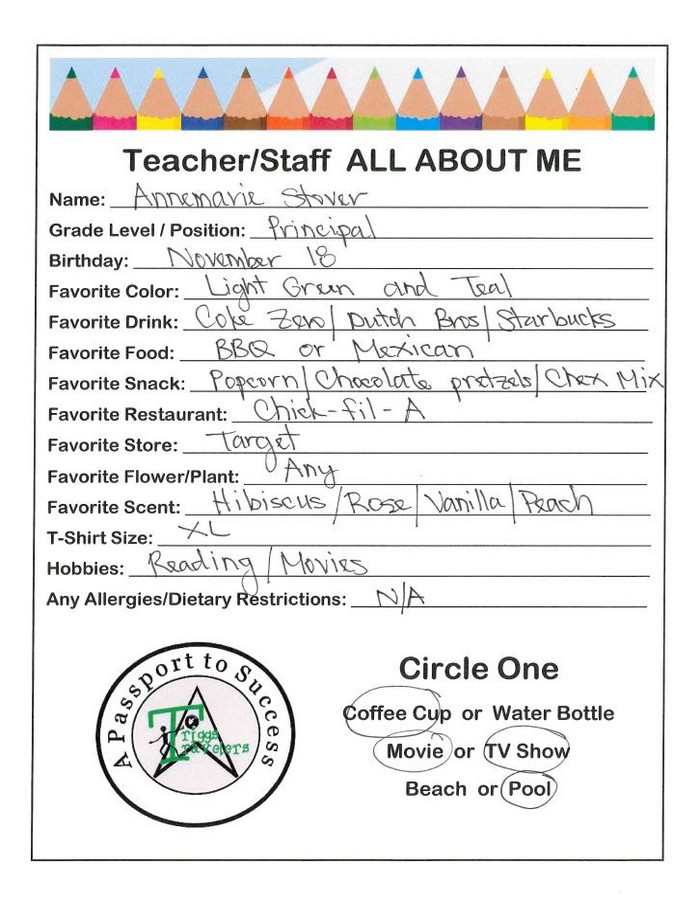 Teacher/Staff ALL ABOUT ME
Name: Annemarie Stover
Grade Level / Position: Principal
Birthday: November 18
Favorite Color: Light Green and Teal
Favorite Drink: Coke Zero/Dutch Bros/Starbucks
Favorite Food: BBQ or Mexican
Favorite Snack: Popcorn/Chocolate pretzels/Chex Mix
Favorite Restaurant: Chick-fil-A
Favorite Store: Target
Favorite Flower/Plant: Any
Favorite Scent: Hibiscus/Rose/Vanilla/Peach
T-Shirt Size: XL
Hobbies: Reading/Movies
Any Allergies/Dietary Restrictions: N/A
A Passport to Success
Triggs
Travelers
Circle One
Coffee Cup or Water Bottle
Movie or TV Show
Beach or Pool